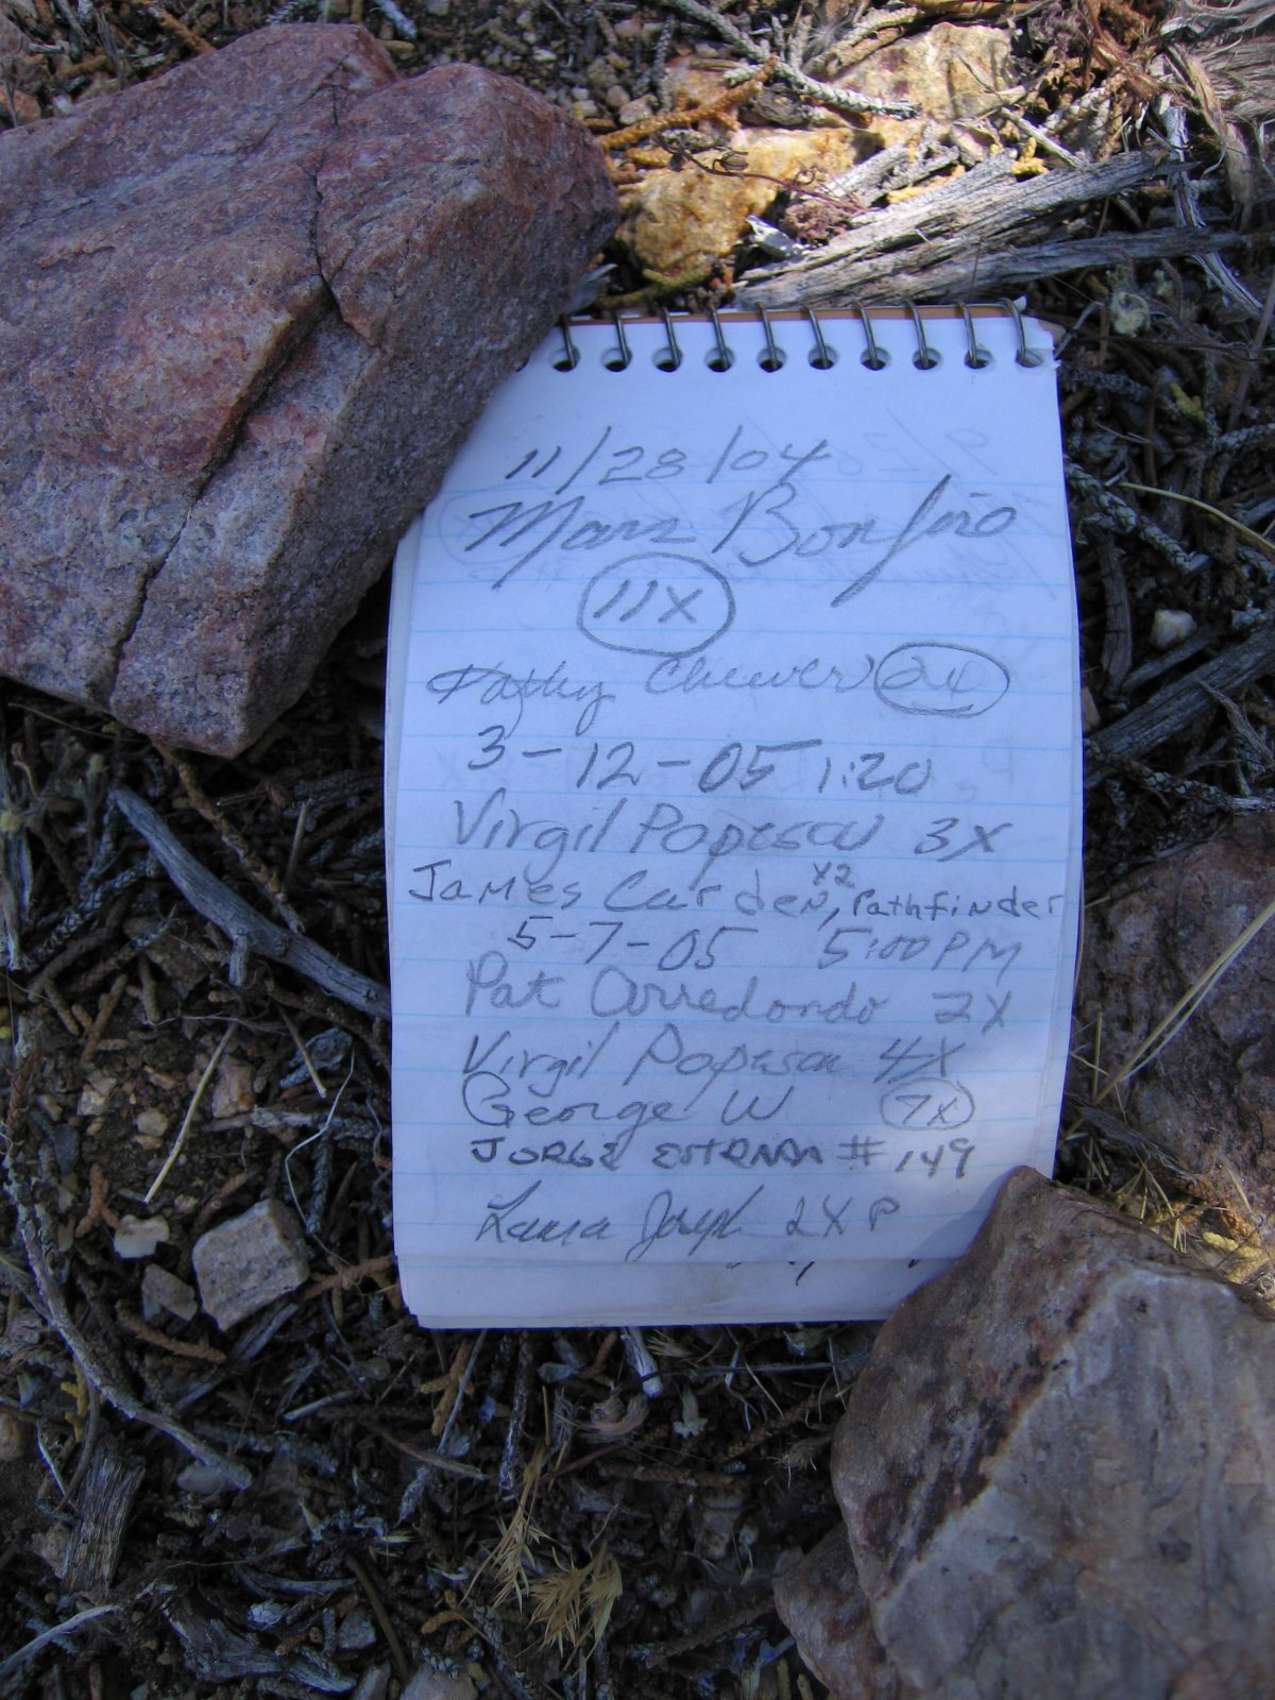 11/28/04
Marz Bonfiro
11X
Kathy Cheever 24
3-12-05 1:20
Virgil Popescu 3X
James Carden, X2 Pathfinder
5-7-05 5:00 PM
Pat Arredondo 2X
Virgil Popescu 4X
George W 7X
JORGE ESTRADA # 149
Laura Joseph 2X P